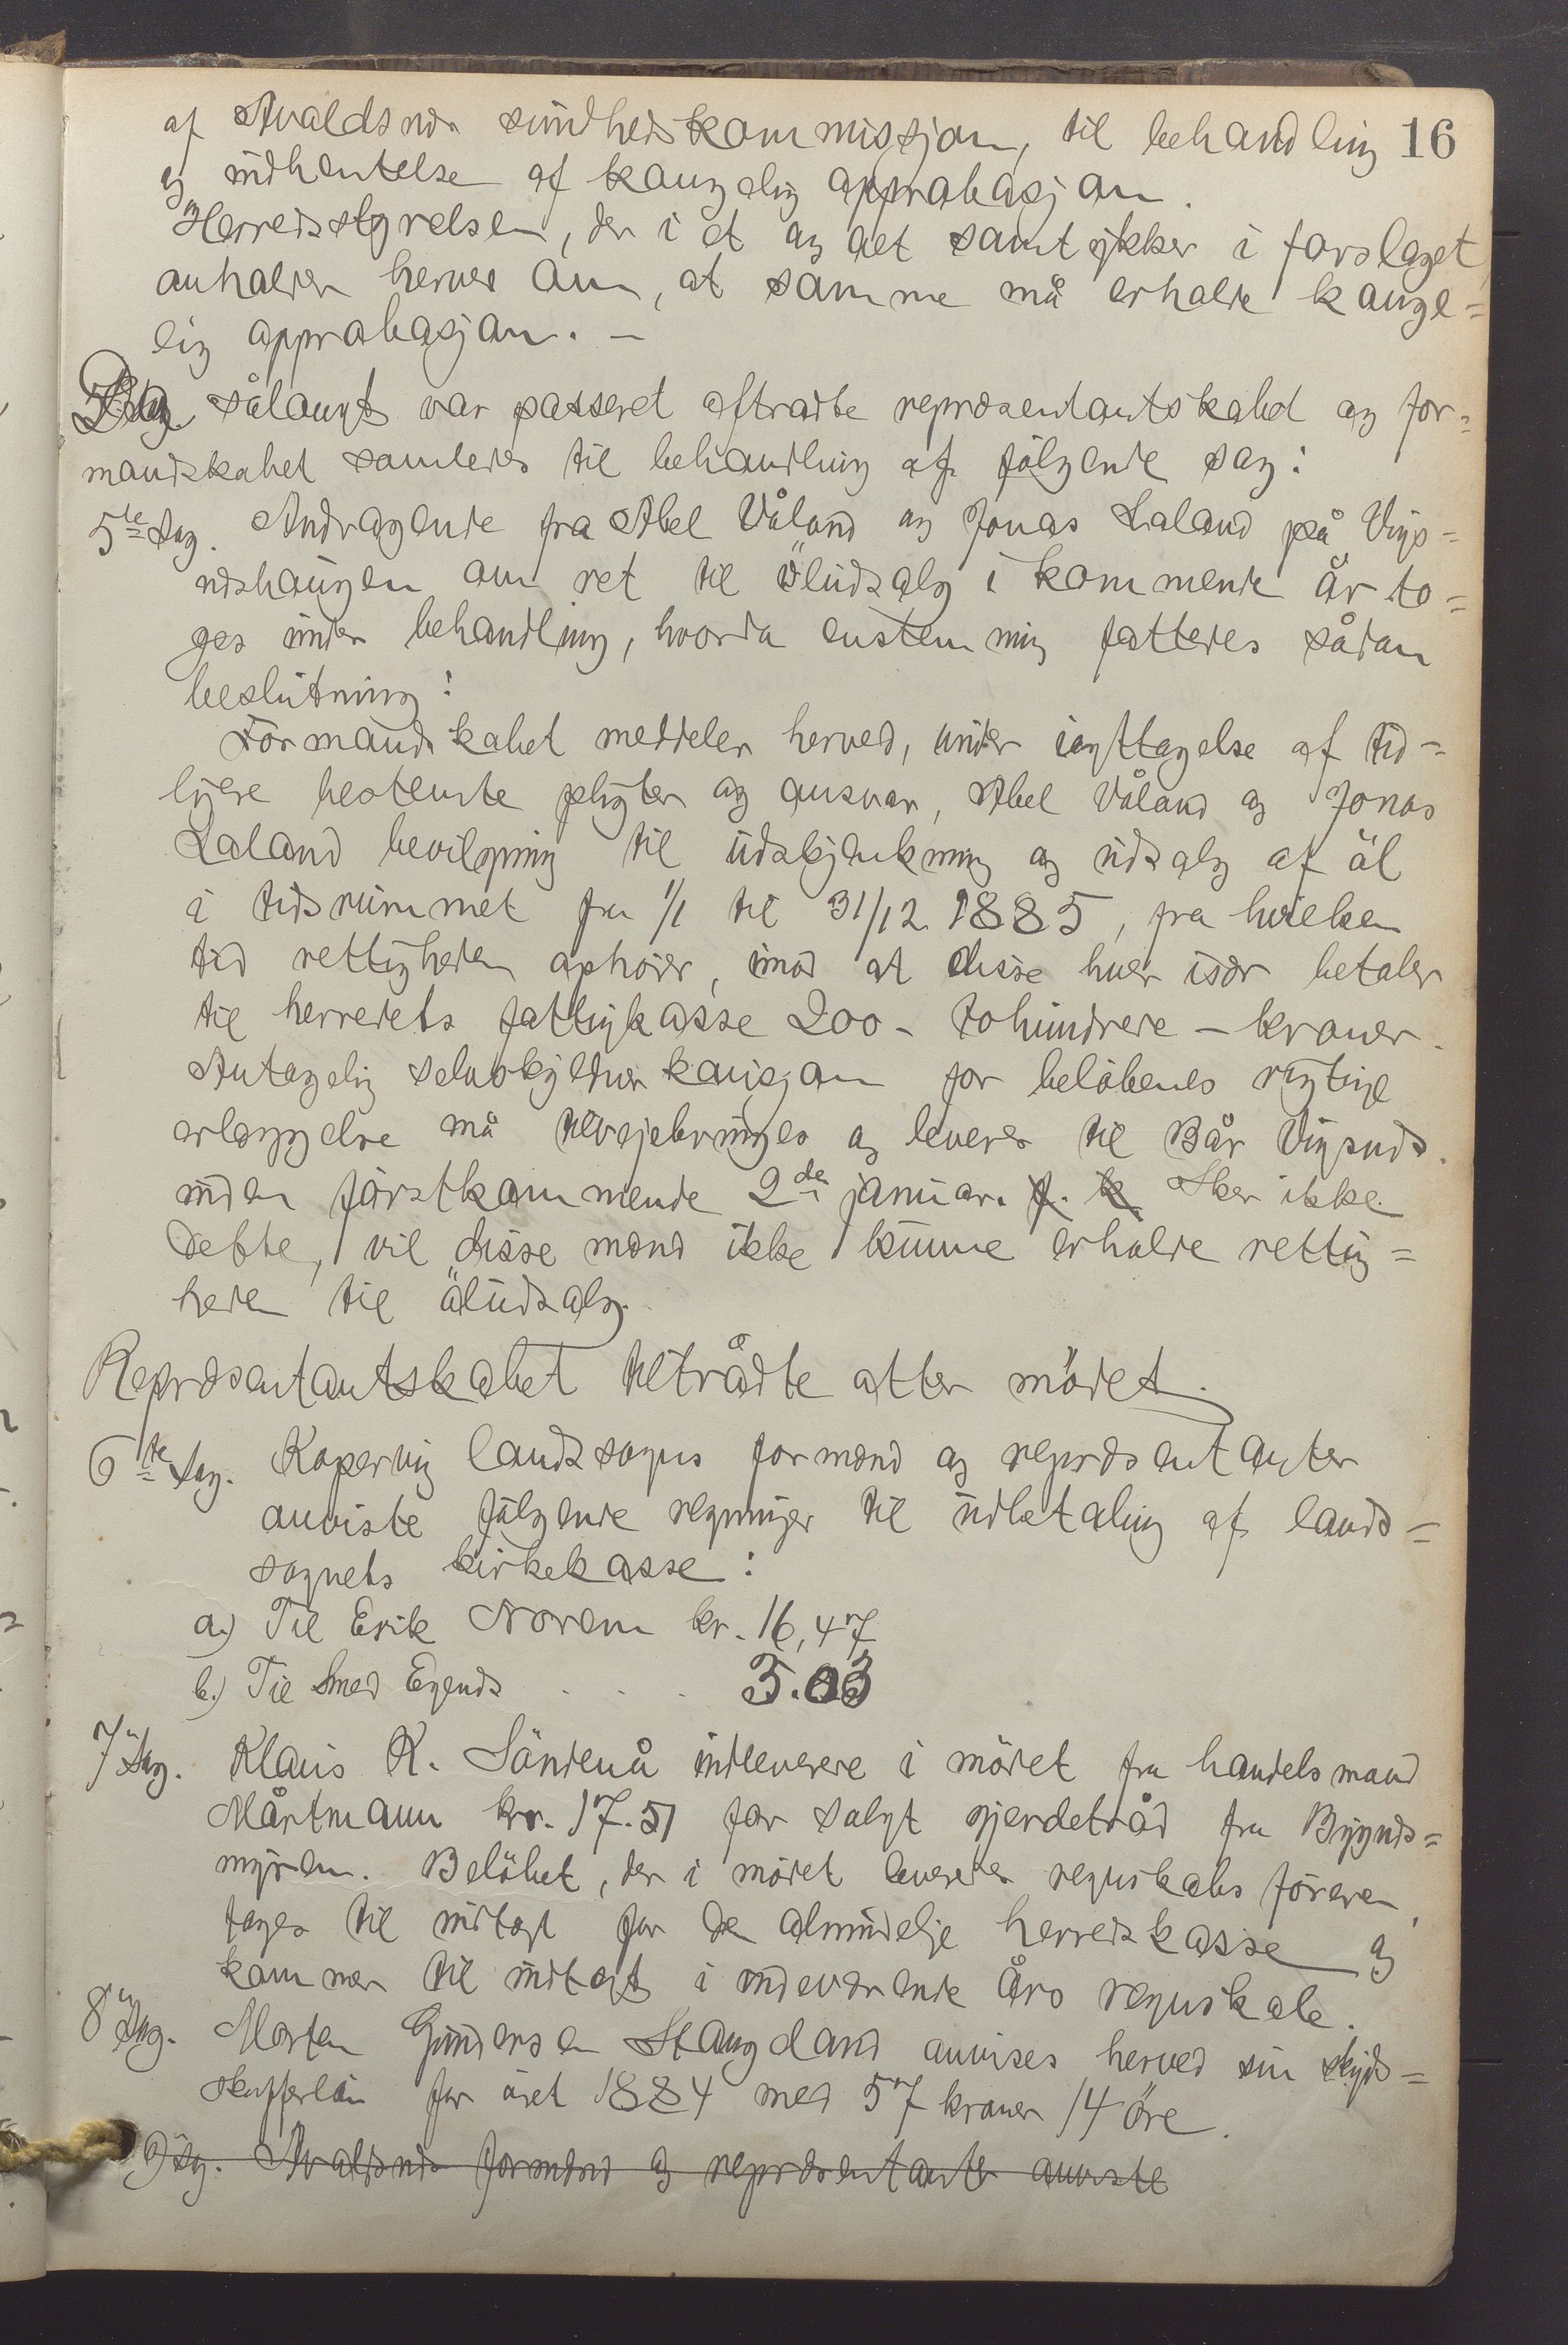 af Avaldsnds sundhedskommissjon, til behandling 16
og indhentelse af kongelig approbasjon.
Herredsstyrelsen, der i et og alt samtykker i forslaget,
anholder herved om, at samme må erholde konge=
lig approbasjon. –
Da sålangt var passeret aftradte repræsentantskabet og for=
mandskabet samledes til behandling af følgende sag:
5te Sag. Andragende fra Abel Våland og Jonas Laland på Vigs=
ndshaugen om ret til öludsalg i kommende år to=
ges under behandling, hvorda enstemmig fattedes sådan
beslutning:
Formandskabet meddeler herved, under iagttagelse af tid=
ligere bestemte pligter og ansvar, Abel Våland og Jonas
Laland bevilgning til udskjenkning og udsalg af öl
i tidsrummet fra 1/1 til 31/12 1885, fra hvilken
tid rettigheden ophører, imod at disse hver især betaler
til herredets fattigkasse 200 – tohundrede – kroner.
Antagelig selvskyldnerkausjon for beløbenes rigtige
erlæggelse må tilvejebringes og leveres til Bår Vigsnds
inden førstkommende 2den januar. f. k. Sker ikke
dette, vil disse mænd ikke kunne erholde rettig=
heden til öludsalg.
Repræsentantskabet tiltrådte atter mödet.
6te Sag. Kopervig landsogns formænd og repræsentanter
anviste følgende regninger til udbetaling af lands=
sognets kirkekasse:
a.) Til Erik Norem kr. 16,47
b.) Til Smed Egends . . . 3.03
7 Sag. Klaus K. Söndenå indleverede i mödet fra handelsmand
Mårtmann kr. 17.51 for solgt gjerdetråd fra Bygnds=
myren. Beløbet, der i mödet leveredes regnskabsføreren,
tages til indtægt for de almindelige herredskasse og
kommer til indtægt i indeværende års regnskab.
8 Sag. Morten Gundersen Stangeland anvises herved sin skyds=
skafferlön for året 1884 med 57 kroner 14 öre.
9 Sag. Avaldsnds formænd og repræsentanter anviste